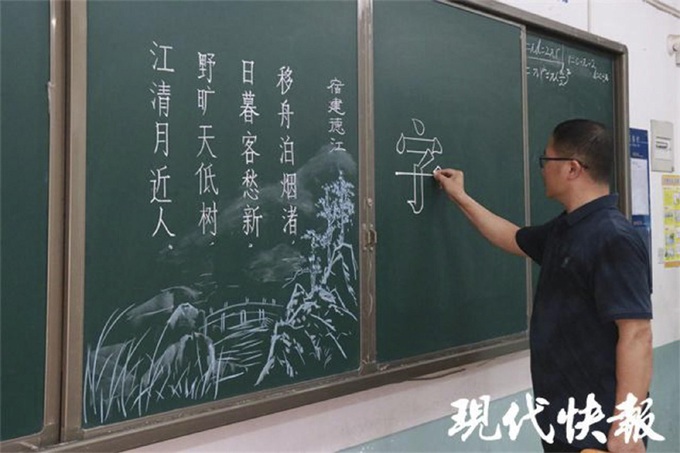 宿建德江
移舟泊烟渚，
日暮客愁新．
野旷天低树，
江清月近人．
字
现代快報